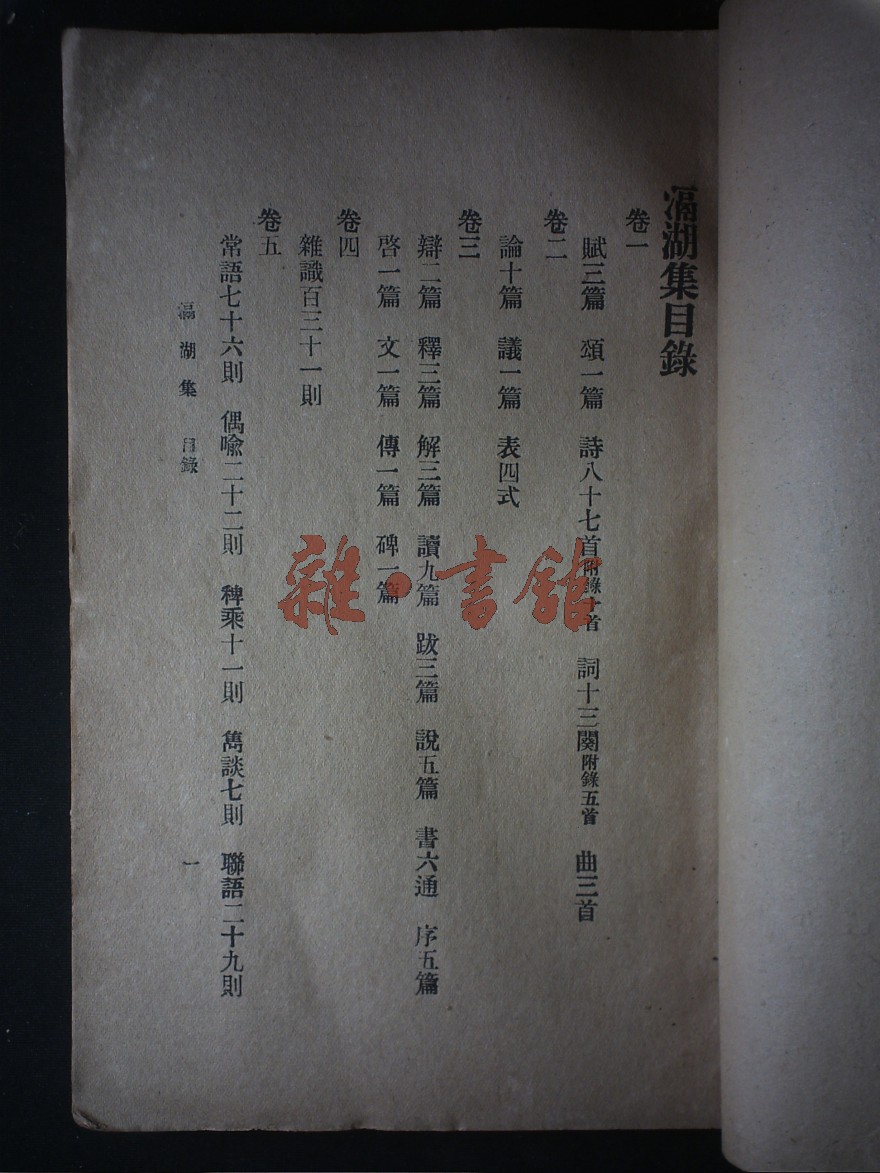 滆湖集目錄
卷一
賦三篇　頌一篇　詩八十七首附錄十首　詞十三闋附錄五首　曲三首
卷二
論十篇　議一篇　表四式
卷三
辯二篇　釋三篇　解三篇　讀九篇　跋三篇　說五篇　書六通　序五篇
啓一篇　文一篇　傳一篇　碑一篇
卷四
雜識百三十一則
卷五
常語七十六則　偶喩二十二則　稗乘十一則　雋談七則　聯語二十九則
滆湖集　目錄　一
雜·書館